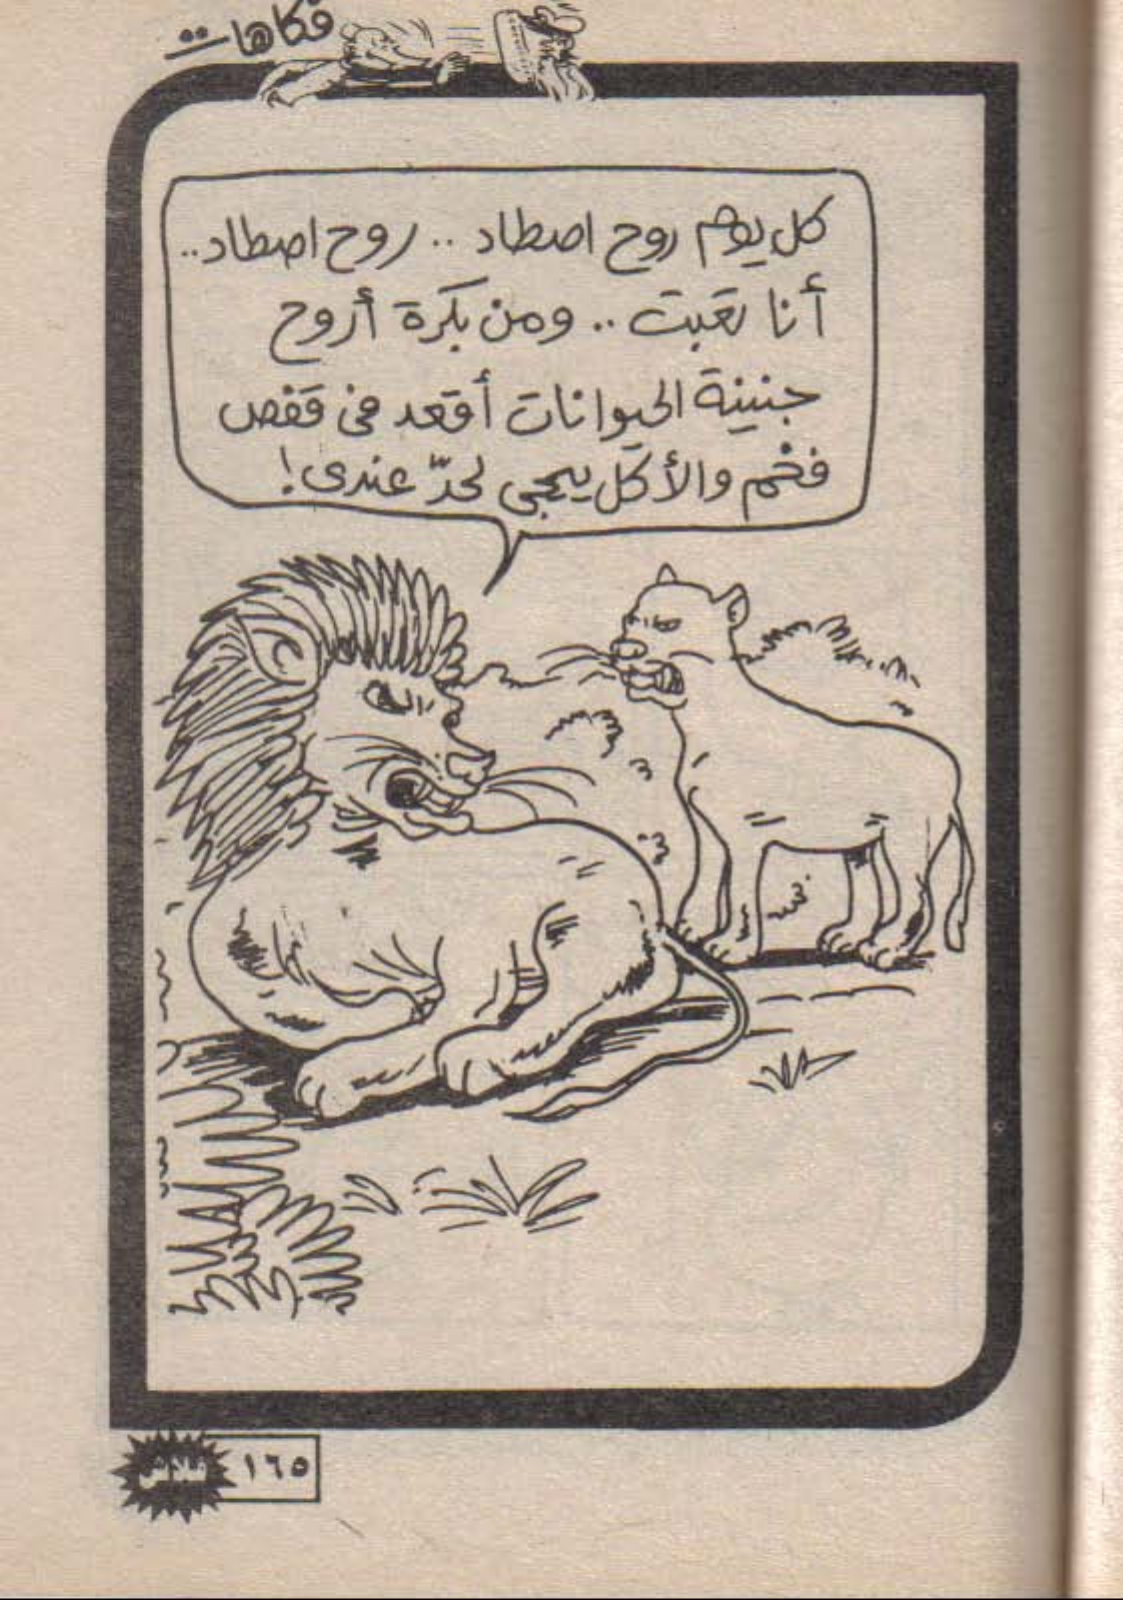 فكاهات
كل يوم روح اصطاد .. روح اصطاد ..
أنا تعبت .. ومن بكرة أروح
جنينة الحيوانات أقعد فى قفص
فخم والأكل ييجى لحدّ عندى!
فلاش ١٦٥